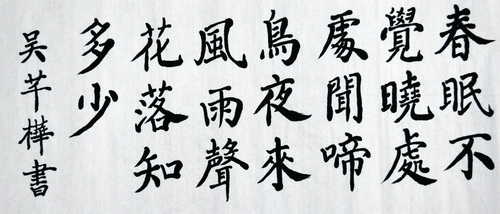 春眠不
覺曉處
處聞啼
鳥夜來
風雨聲
花落知
多少
吳芊樺書